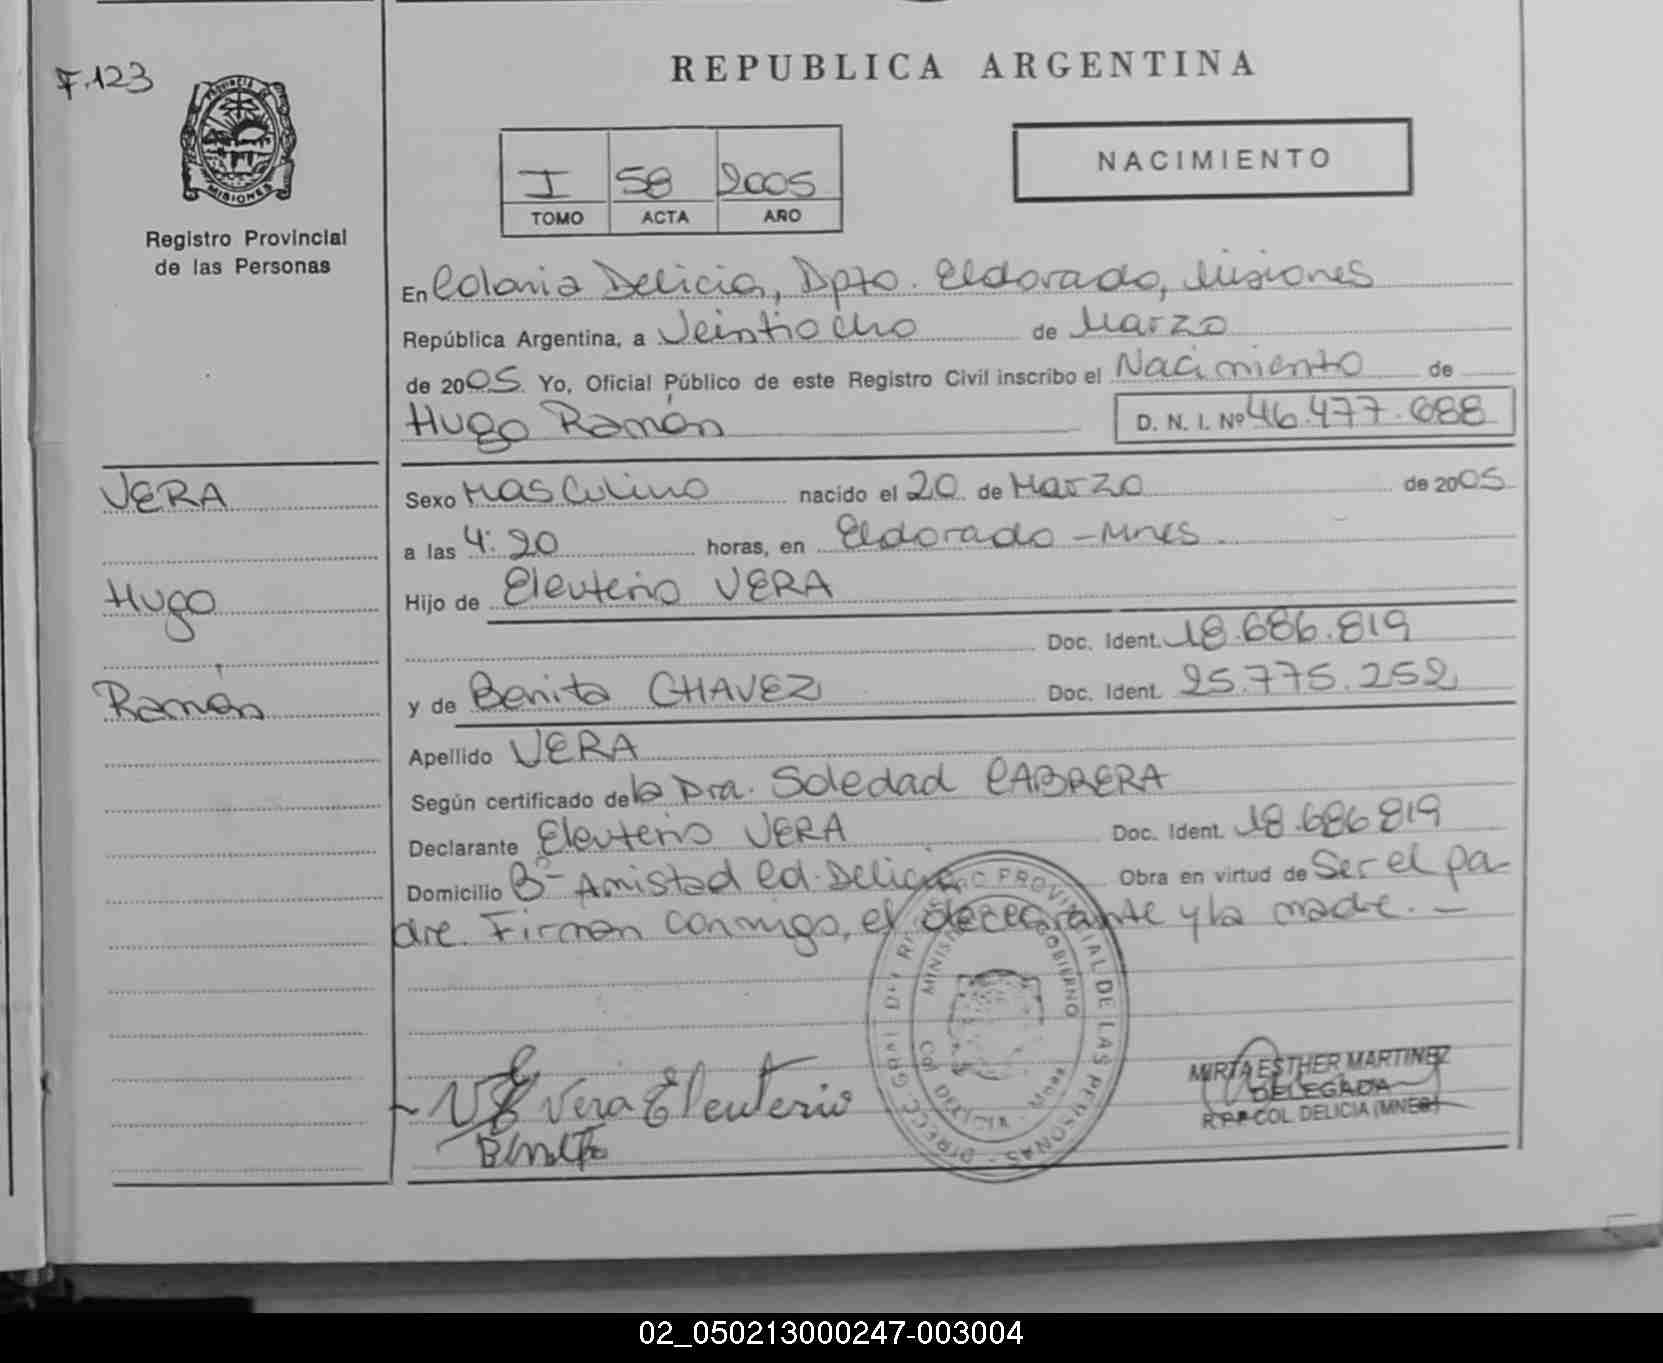 F.123
PROVINCIA DE
MISIONES
Registro Provincial
de las Personas
REPUBLICA ARGENTINA
I 58 2005
TOMO ACTA AÑO
NACIMIENTO
En Colonia Delicia, Dpto. Eldorado, Misiones
República Argentina, a Veintiocho de Marzo
de 2005. Yo, Oficial Público de este Registro Civil inscribo el Nacimiento de
Hugo Ramón D. N. I. Nº 46.477.688
VERA
Hugo
Ramón
Sexo Masculino nacido el 20 de Marzo de 2005
a las 4:20 horas, en Eldorado - Mnes.
Hijo de Eleuterio VERA
Doc. Ident. 18.686.819
y de Benita CHAVEZ Doc. Ident. 25.775.252
Apellido VERA
Según certificado de la Dra. Soledad CABRERA
Declarante Eleuterio VERA Doc. Ident. 18.686819
Domicilio Bº Amistad Col. Delicia Obra en virtud de Ser el pa-
dre. Firman conmigo, el declarante y la madre. -
Vera Eleuterio
MIRTA ESTHER MARTINEZ
DELEGADA
R.P.P COL. DELICIA (MNES)
02_050213000247-003004